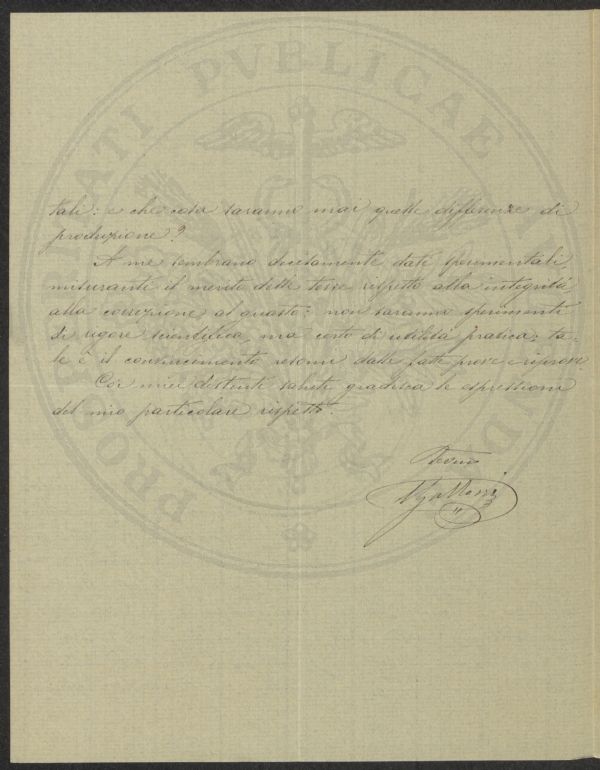 PROSPERITATI PVBLICAE
tali: e che cosa saranno mai queste differenze di
produzione?
A me sembrano decisamente dati sperimentali
misuranti il merito delle terre rispetto alla integrità
alla correzione al guasto: non saranno sperimenti
di rigore scientifico, ma certo di utilità pratica; ta-
le è il convincimento resomi dalle fatte prove e riprove
Coi miei distinti saluti gradisca le espressioni
del mio particolare rispetto.